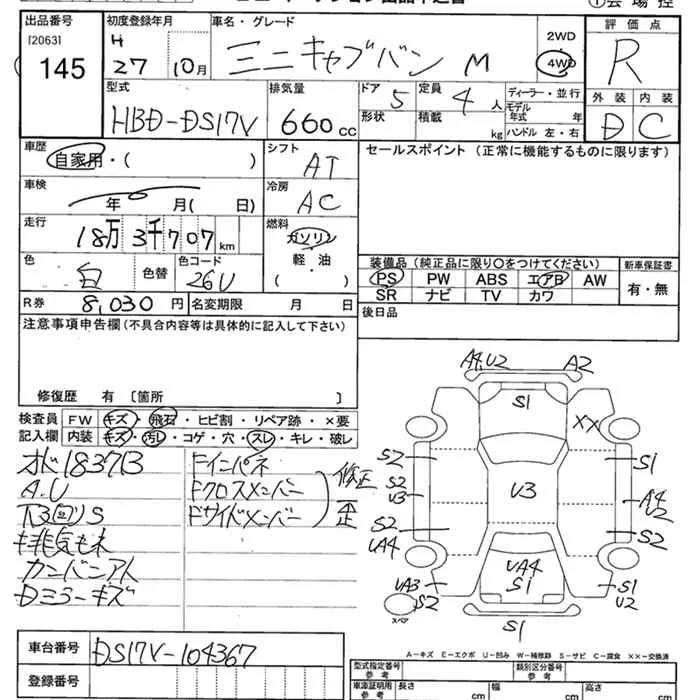 出品番号 初度登録年月 車名・グレード 評価点
[2063] H
145 27 10月 ミニキャブバン M 2WD 4WD R
型式 排気量 ドア 5 定員 4人 ディーラー・並行 外装 内装
HBD-DS17V 660cc 形状 積載 kg モデル年式 年 D C
ハンドル 左・右
車歴 シフト セールスポイント(正常に機能するものに限ります)
自家用・( ) AT
車検 冷房
年 月( 日) AC
走行 燃料
18万3千707km ガソリン
軽・油
( )
色 色替 色コード 装備品(純正品に限り○をつけてください) 新車保証書
白 26U PS PW ABS エアB AW 有・無
R券 8,030円 名変期限 月 日 SR ナビ TV カワ
注意事項申告欄(不具合内容等は具体的に記入して下さい) 後日品
修復歴 有 [箇所 ]
検査員 FW キズ・飛石・ヒビ割・リペア跡・×要
記入欄 内装 キズ・汚レ・コゲ・穴・スレ・キレ・破レ
オド183713 Fインパネ
A.U Fクロスメンバー 修正
下回りS Fサイドメンバー 歪
排気モレ
カンバンアト
Dミラーキズ
A4,U2 A2
S1
XX
S2 S1
S2
U3 U3 A4
U2
S2 S2
UA4 UA4
S1
UA3 S1
S2 U2
スペア
S1
A-キズ E-エクボ U-凹み W-補修跡 S-サビ C-腐食 ××-交換済
車台番号 DS17V-104367
登録番号
型式指定番号 参考 類別区分番号 参考
車庫証明用 参考 長さ cm 幅 cm 高さ cm